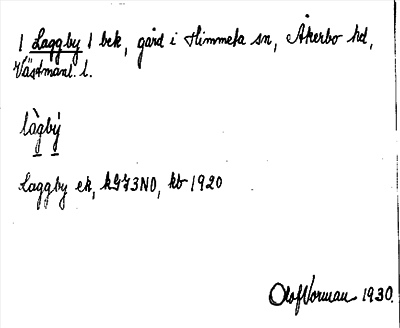 1 Laggby 1 bek, gård i Himmeta sn, Åkerbo hd,
Västmanl. l.
làgbý
Laggby ek, kGJ3NO, kb 1920
Olof Vorman 1930.